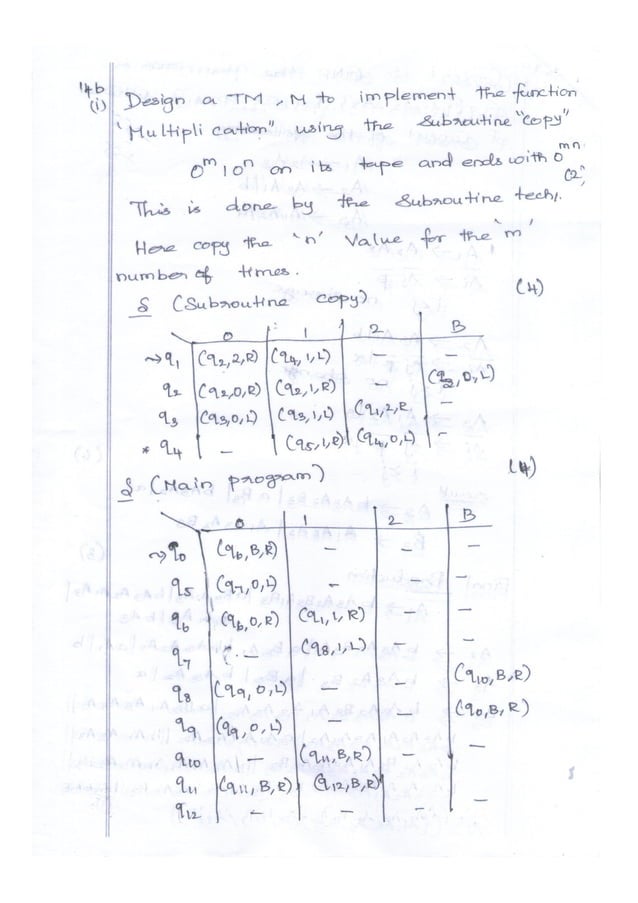 14b
(i) Design a TM, M to implement the function
"Multiplication" using the Subroutine "Copy"
0^m 1 0^n on its tape and ends with 0^mn (2)
This is done by the Subroutine tech/.
Here copy the 'n' Value for the 'm'
number of times.
δ (Subroutine copy) (4)
0 1 2 B
→q1 (q2,2,R) (q4,1,L) – –
q2 (q2,0,R) (q2,1,R) – (q3,0,L)
q3 (q3,0,L) (q3,1,L) (q1,2,R –
* q4 – (q5,1,R) (q4,0,L) –
δ (Main program) (4)
0 1 2 B
→q0 (q6,B,R) – – –
q5 (q7,0,L) – – –
q6 (q6,0,R) (q1,1,R) – –
q7 – (q8,1,L) – –
q8 (q9,0,L) – – (q10,B,R)
q9 (q9,0,L) – – (q0,B,R)
q10 – (q11,B,R) –
q11 (q11,B,R) (q12,B,R)
q12 – – – –